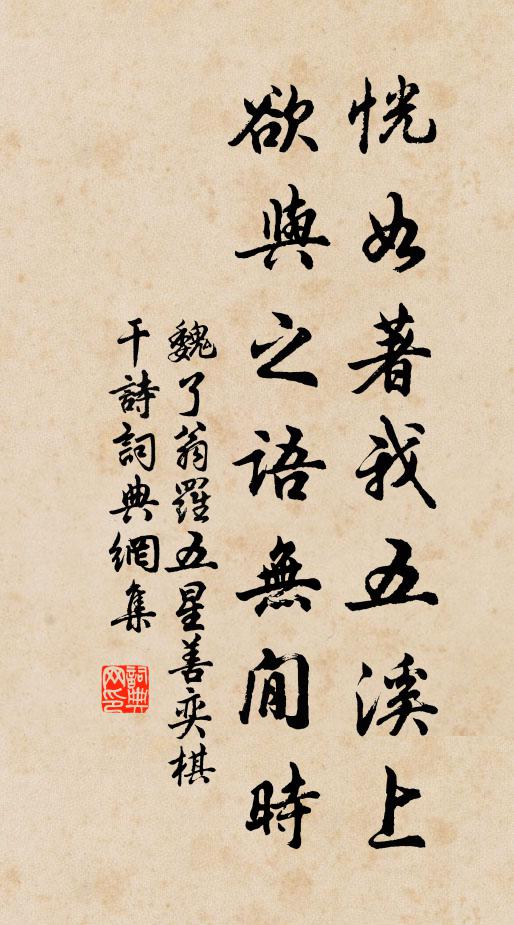 恍如著我五溪上
欲與之語無閒時
魏了翁羅五星善奕棋
干詩詞典網集
詞典
网印